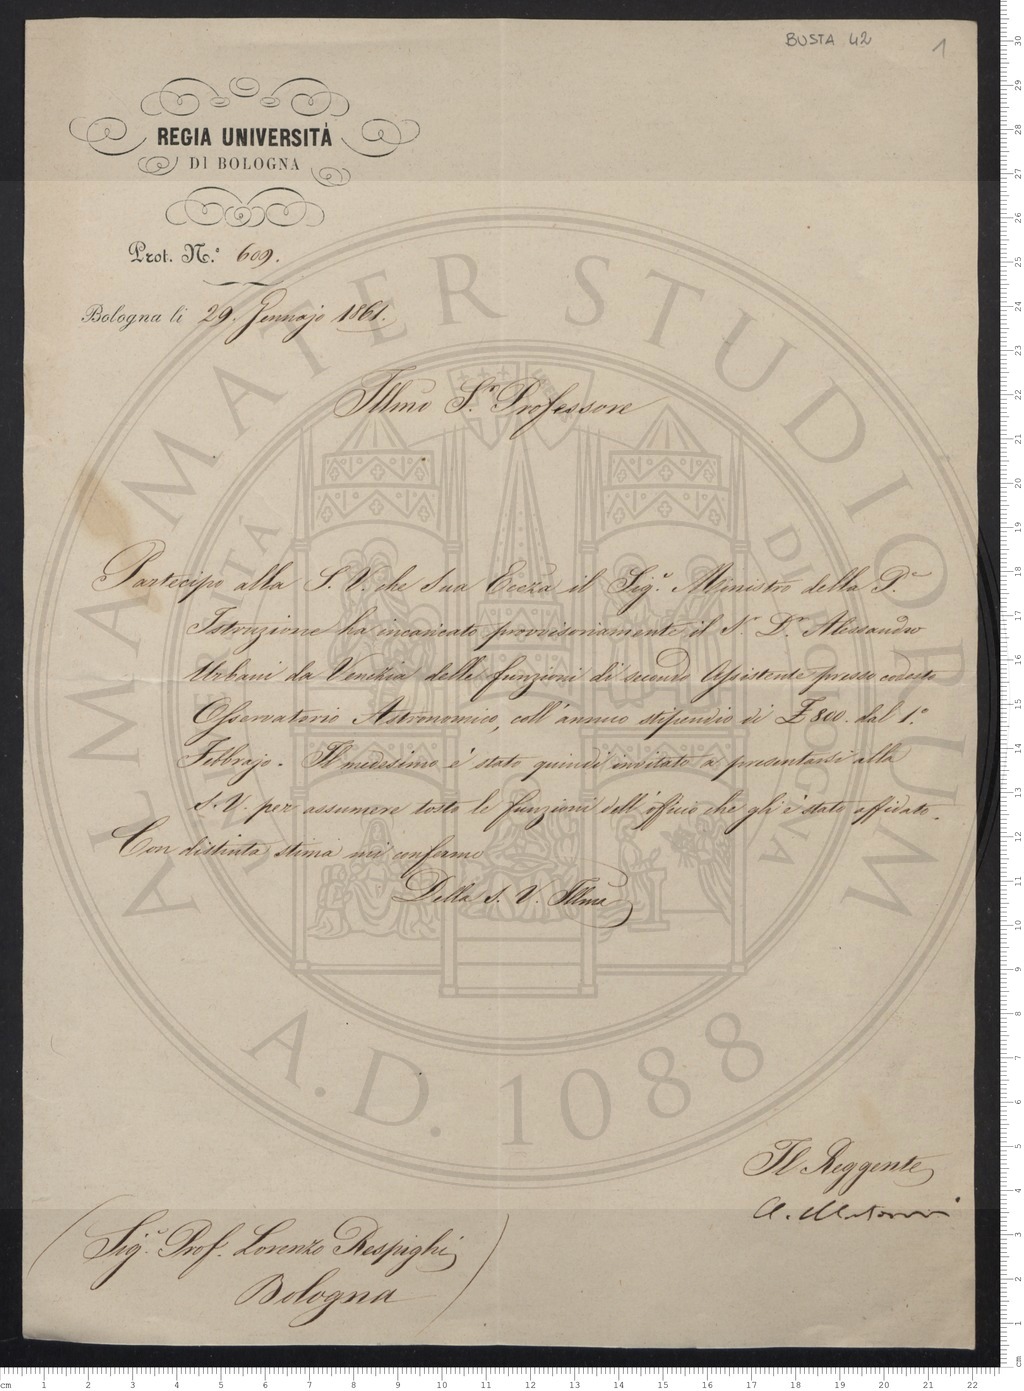 BUSTA 42
1
REGIA UNIVERSITÀ
DI BOLOGNA
Prot. N.º 609.
Bologna li 29. Gennajo 1861.
Illmo S.r Professore
Partecipo alla S. V. che Sua Ecc̃za il Sig.r Ministro della P.
Istruzione ha incaricato provvisoriamente il S.r D.r Alessandro
Urbani da Venezia delle funzioni di secondo Assistente presso codesto
Osservatorio Astronomico, coll'annuo stipendio di £ 800. dal 1.º
Febbrajo. Il medesimo è stato quindi invitato a presentarsi alla
S. V. per assumere tosto le funzioni dell'officio che gli è stato affidato.
Con distinta stima mi confermo
Della S. V. Illma
Il Reggente
A.
Sig.r Prof. Lorenzo Respighi
Bologna
ALMA MATER STUDIORUM
UNIVERSITÀ DI BOLOGNA
A.D. 1088